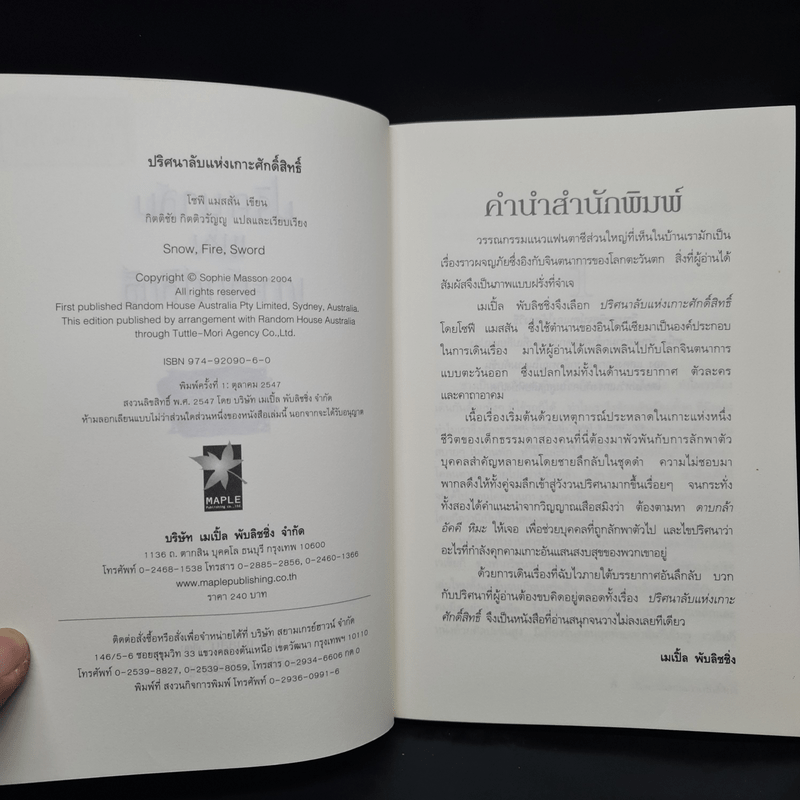 ปริศนาลับแห่งเกาะศักดิ์สิทธิ์
โซฟี แมสสัน เขียน
กิตติชัย กิตติวรัญญู แปลและเรียบเรียง
Snow, Fire, Sword
Copyright © Sophie Masson 2004
All rights reserved
First published Random House Australia Pty Limited, Sydney, Australia.
This edition published by arrangement with Random House Australia
through Tuttle-Mori Agency Co.,Ltd.
ISBN 974-92090-6-0
พิมพ์ครั้งที่ 1: ตุลาคม 2547
สงวนลิขสิทธิ์ พ.ศ. 2547 โดย บริษัท เมเปิ้ล พับลิชชิ่ง จำกัด
ห้ามลอกเลียนแบบไม่ว่าส่วนใดส่วนหนึ่งของหนังสือเล่มนี้ นอกจากจะได้รับอนุญาต
MAPLE
Publishing co.,ltd
บริษัท เมเปิ้ล พับลิชชิ่ง จำกัด
1136 ถ. ตากสิน บุคคโล ธนบุรี กรุงเทพ 10600
โทรศัพท์ 0-2468-1538 โทรสาร 0-2885-2856, 0-2460-1366
www.maplepublishing.co.th
ราคา 240 บาท
ติดต่อสั่งซื้อหรือสั่งเพื่อจำหน่ายได้ที่ บริษัท สยามเกรย์ฮาวน์ จำกัด
146/5-6 ซอยสุขุมวิท 33 แขวงคลองตันเหนือ เขตวัฒนา กรุงเทพฯ 10110
โทรศัพท์ 0-2539-8827, 0-2539-8059, โทรสาร 0-2934-6606 กด 0
พิมพ์ที่ สงวนกิจการพิมพ์ โทรศัพท์ 0-2936-0991-6
คำนำสำนักพิมพ์
วรรณกรรมแนวแฟนตาซีส่วนใหญ่ที่เห็นในบ้านเรามักเป็น
เรื่องราวผจญภัยซึ่งอิงกับจินตนาการของโลกตะวันตก สิ่งที่ผู้อ่านได้
สัมผัสจึงเป็นภาพแบบฝรั่งที่จำเจ
เมเปิ้ล พับลิชชิ่งจึงเลือก ปริศนาลับแห่งเกาะศักดิ์สิทธิ์
โดยโซฟี แมสสัน ซึ่งใช้ตำนานของอินโดนีเซียมาเป็นองค์ประกอบ
ในการเดินเรื่อง มาให้ผู้อ่านได้เพลิดเพลินไปกับโลกจินตนาการ
แบบตะวันออก ซึ่งแปลกใหม่ทั้งในด้านบรรยากาศ ตัวละคร
และคาถาอาคม
เนื้อเรื่องเริ่มต้นด้วยเหตุการณ์ประหลาดในเกาะแห่งหนึ่ง
ชีวิตของเด็กธรรมดาสองคนที่นี่ต้องมาพัวพันกับการลักพาตัว
บุคคลสำคัญหลายคนโดยชายลึกลับในชุดดำ ความไม่ชอบมา
พากลดึงให้ทั้งคู่จมลึกเข้าสู่วังวนปริศนามากขึ้นเรื่อยๆ จนกระทั่ง
ทั้งสองได้คำแนะนำจากวิญญาณเสือสมิงว่า ต้องตามหา ดาบกล้า
อัคคี หิมะ ให้เจอ เพื่อช่วยบุคคลที่ถูกลักพาตัวไป และไขปริศนาว่า
อะไรที่กำลังคุกคามเกาะอันแสนสงบสุขของพวกเขาอยู่
ด้วยการเดินเรื่องที่ฉับไวภายใต้บรรยากาศอันลึกลับ บวก
กับปริศนาที่ผู้อ่านต้องขบคิดอยู่ตลอดทั้งเรื่อง ปริศนาลับแห่งเกาะ
ศักดิ์สิทธิ์ จึงเป็นหนังสือที่อ่านสนุกจนวางไม่ลงเลยทีเดียว
เมเปิ้ล พับลิชชิ่ง